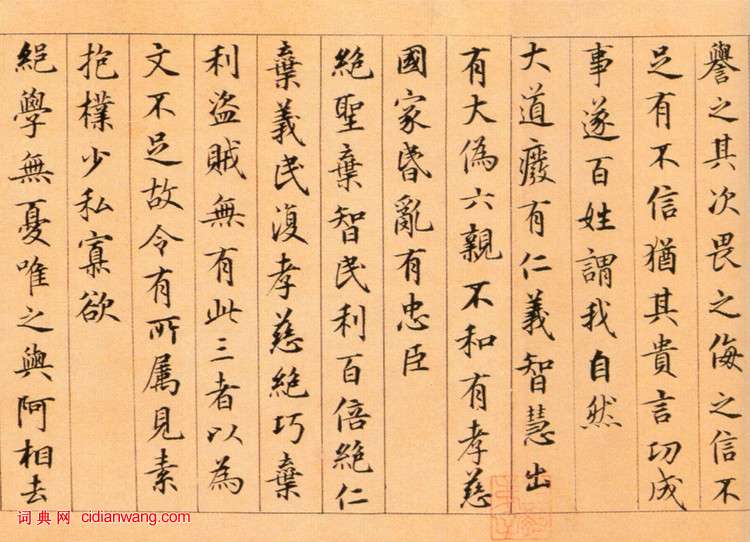 譽之其次畏之侮之信不
足有不信猶其貴言功成
事遂百姓謂我自然
大道癈有仁義智慧出
有大偽六親不和有孝慈
國家昏亂有忠臣
絶聖棄智民利百倍絶仁
棄義民復孝慈絶巧棄
利盗賊無有此三者以為
文不足故令有所属見素
抱樸少私寡欲
絕學無憂唯之與阿相去
词典网 cidianwang.com